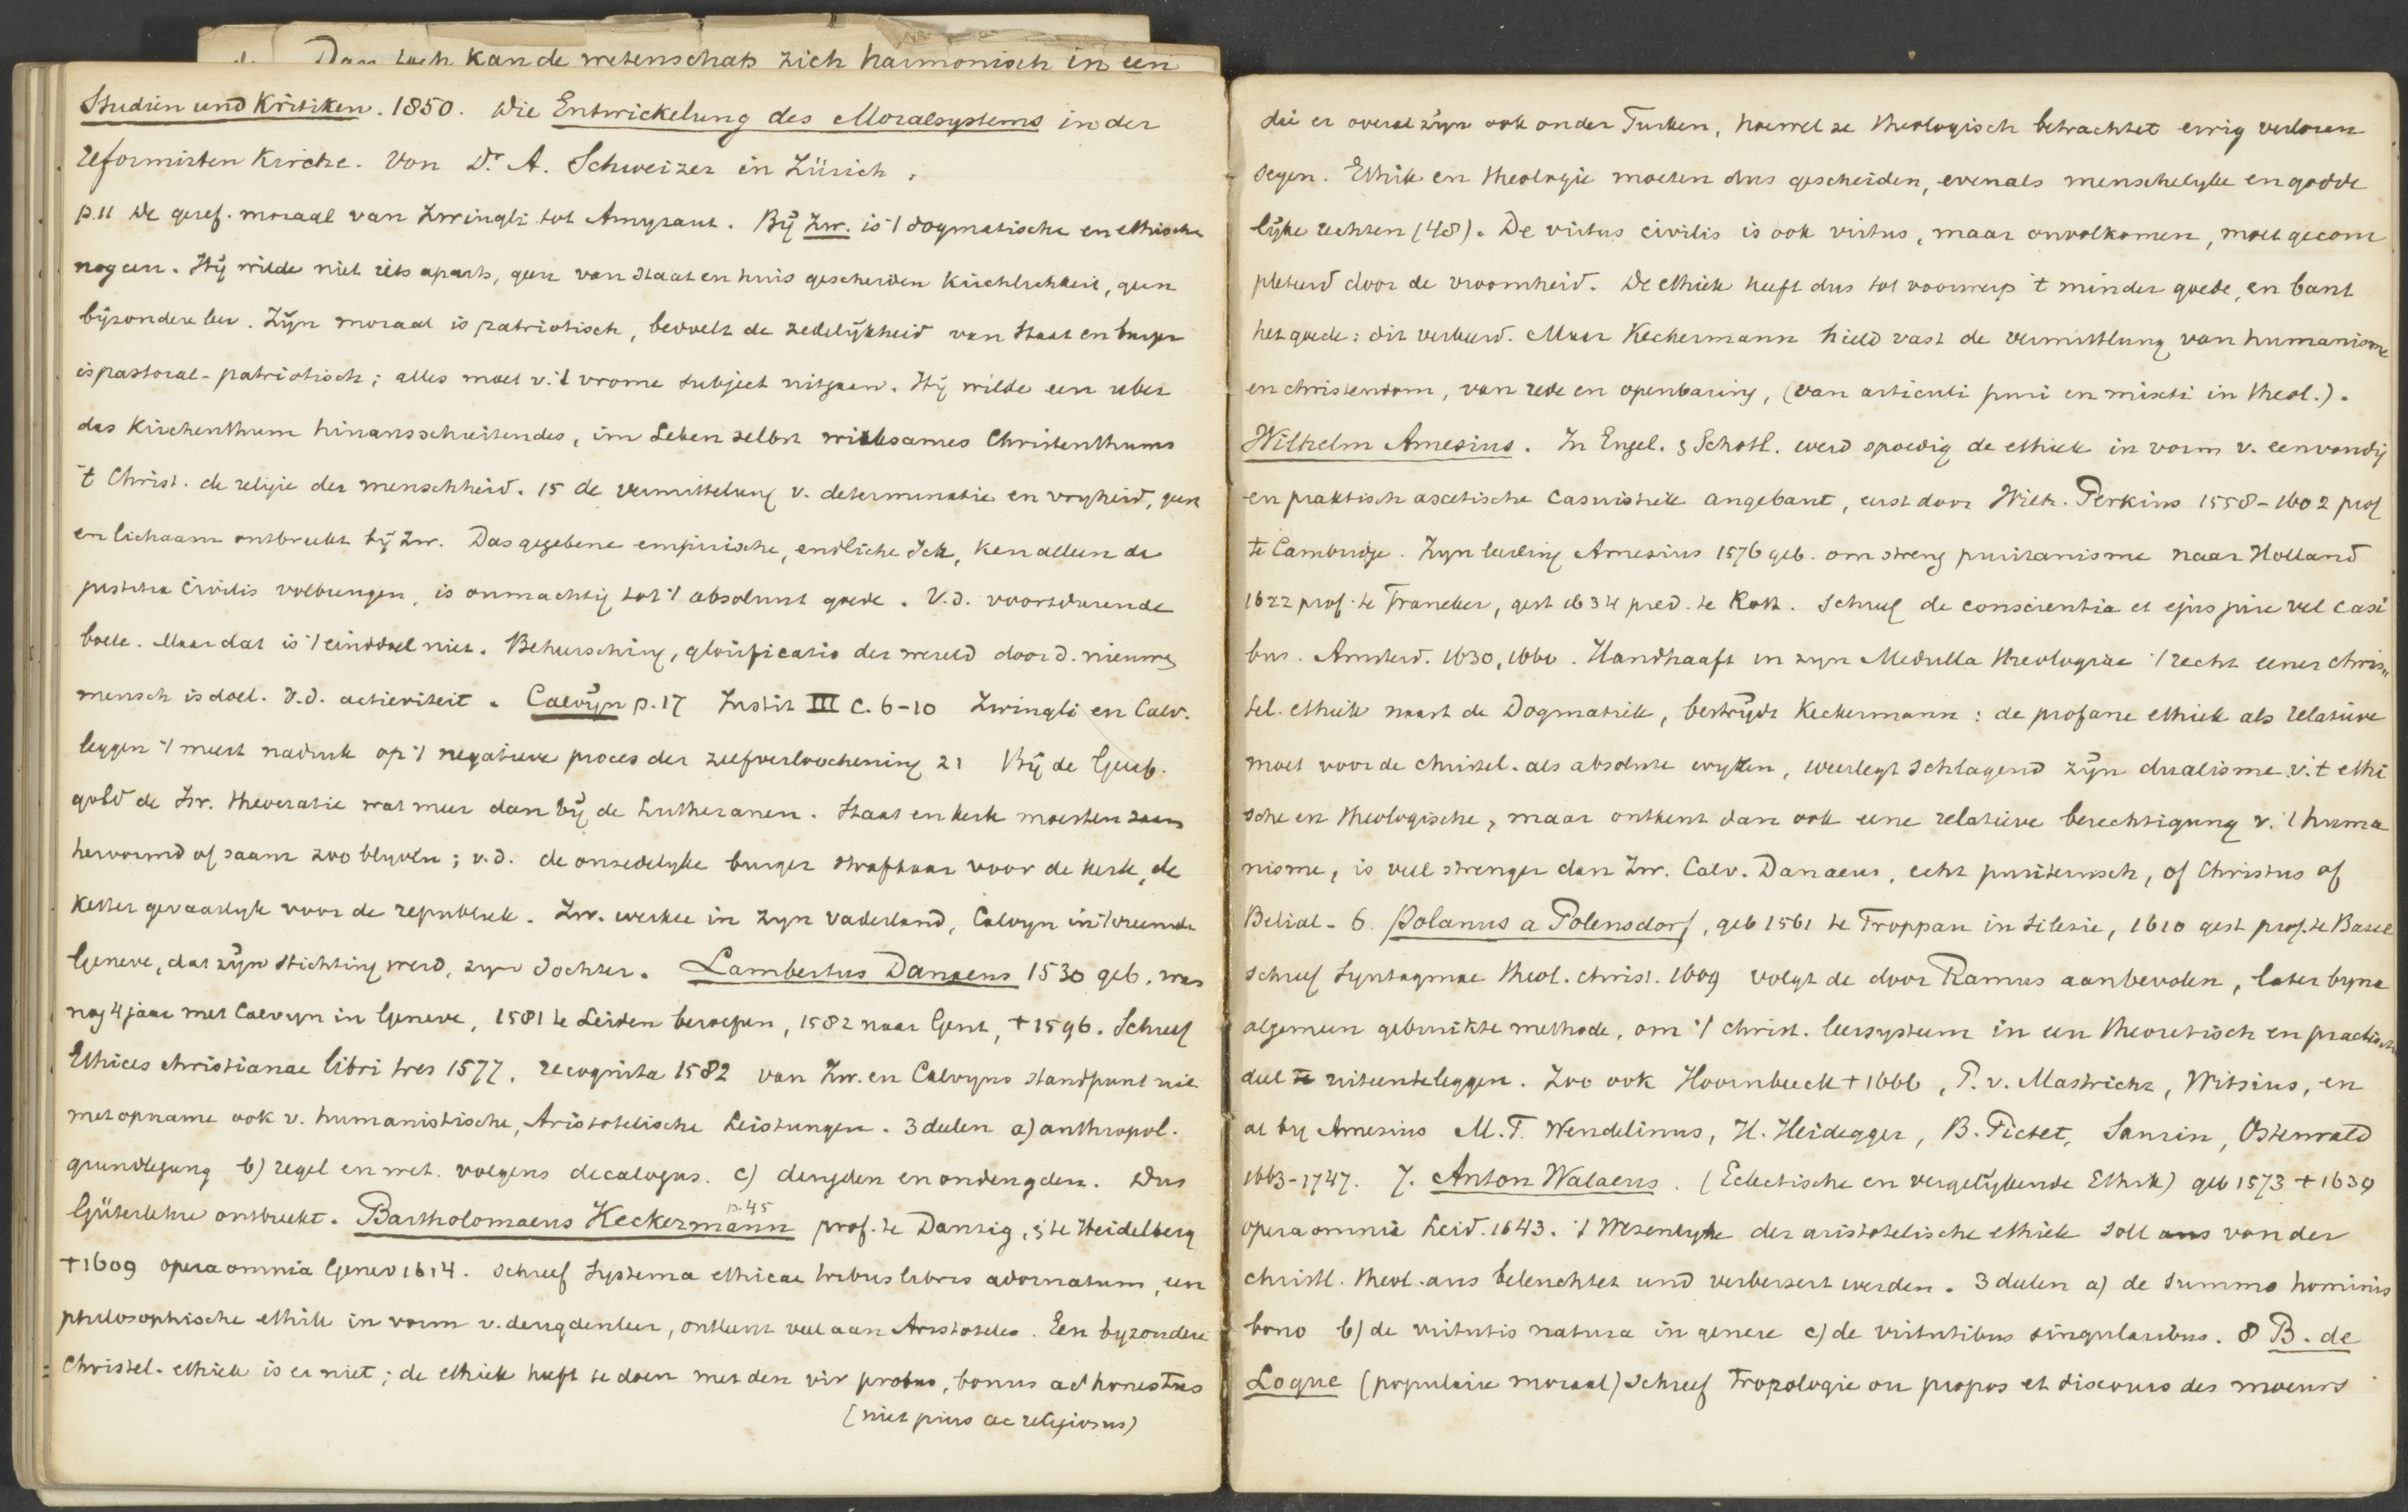 Dan toch kan de wetenschap zich harmonisch in een
Studien und Kritiken. 1850. Die Entwickelung des Moralsystems in der
reformirten Kirche. Von Dr. A. Schweizer in Zürich.
p.11 De geref. moraal van Zwingli tot Amyraut. Bij Zw. is 't dogmatische en ethische
nog een. Hij wilde niet iets aparts, geen van staat en huis gescheiden Kirchlichkeit, geen
bijzondere leer. Zijn moraal is patriotisch, bedoelt de zedelijkheid van staat en burger
is pastoral-patriotisch; alles moet v. 't vrome subject uitgaan. Hij wilde een uber
das Kirchenthum hinausschreitendes, im Leben selbst wirksames Christenthums
't Christ. de religie der menschheid. 15 de vermittelung v. determinatie en vryheid, geest
en lichaam ontbreekt bij Zw. Das gegebene empirische, endliche Ich, kan alleen de
justitia civilis volbrengen, is onmachtig tot 't absoluut goede. V.d. voortdurende
boete. Maar dat is 't einddoel niet. Beheersching, glorificatio der wereld door d. nieuwe
mensch is doel. V.d. activiteit. Calvijn p.17 Instit III c. 6-10 Zwingli en Calv.
leggen 't meest nadruk op 't negatieve proces der zelfverloochening 21 Bij de Geref.
gold de Zw. theocratie wat meer dan bij de Lutheranen. Staat en kerk moesten saam
hervormd of saam zoo blyven; v.d. de onzedelyke burger strafbaar voor de kerk, de
ketter gevaarlyk voor de republiek. Zw. werkte in zyn vaderland, Calvyn in 't vreemde
Geneve, dat zijn stichting werd, zyn dochter. Lambertus Danaeus 1530 geb. was
nog 4 jaar met Calvyn in Geneve, 1581 te Leiden beroepen, 1582 naar Gent, † 1596. Schreef
Ethices christianae libri tres 1577. recognita 1582 van Zw. en Calvyns standpunt uit
met opname ook v. humanistische, Aristotelische Leistungen. 3 deelen a) anthropol.
grundlegung b) regel en wet. volgens decalogus. c) deugden en ondeugden. Dus
Güterlehre ontbreekt. Bartholomaeus Keckermann p.45 prof. te Danzig, & te Heidelberg
† 1609 opera omnia Genev 1614. schreef Systema ethicae tribus libris adornatum, een
philosophische ethik in vorm v. deugdenleer, ontleent veel aan Aristoteles. Een byzondere
Christel. ethiek is er niet; de ethiek heeft te doen met den vir probus, bonus ac honestus
(niet pius ac religiosus)
die er overal zijn ook onder Turken, hoewel ze theologisch betrachtet eeuwig verloren
Ethik en theologie moeten dus gescheiden, evenals menschelyke en godde
lijke rechten (48). De virtus civilis is ook virtus, maar onvolkomen, moet gecom
pleteerd door de vroomheid. De ethiek heeft dus tot voorwerp 't minder goede, en bant
het goede: dit verkeerd. Maar Keckermann hield vast de vermittlung van humanisme
en christendom, van rede en openbaring, (van articuli puri en mixti in theol.).
Wilhelm Amesius. In Engel. & Schotl. werd spoedig de ethiek in vorm v. eenvoudig
en praktisch ascetische casuistiek angebaut, eerst door Wilh. Perkins 1558-1602 prof
te Cambridge. Zyn leerling Amesius 1576 geb. om streng puritanisme naar Holland
1622 prof. te Franeker, gest 1634 pred. te Rott. Schreef de conscientia et ejus jure vel casi
bus. Amsterd. 1630, 1660. Handhaaft in zyn Medulla theologiae 't recht eener chris
tel. ethiek naast de Dogmatik, bestrijdt Keckermann: de profane ethiek als relatieve
moet voor de christel. als absolute wyken, weerlegt schlagend zijn dualisme v. 't ethi
sche en theologische, maar ontkent dan ook eene relatieve berechtigung v. 't huma
nisme, is veel strenger dan Zw. Calv. Danaeus, echt puriteinsch, of Christus of
Belial. 6. Polanus a Polensdorf, geb 1561 te Troppau in Silesie, 1610 gest prof. te Basel
schreef Syntagmae theol. christ. 1609 volgt de door Ramus aanbevolen, later byna
algemeen gebruikte methode, om 't christ. leersysteem in een theoretisch en practisch
deel uiteenteleggen. Zoo ook Hoornbeeck † 1666, P. v. Mastricht, Witsius, en
al by Amesius M.F. Wendelinus, H. Heidegger, B. Pictet, Saurin, Osterwald
1663-1747. 7. Anton Walaeus. (Eclectische en vergelijkende Ethik) geb 1573 † 1639
opera omnia Leid. 1643. 't Wezenlyke der aristotelische ethiek soll von der
christl. theol. aus beleuchtet und verbessert werden. 3 deelen a) de summo hominis
bono b) de virtutis natura in genere c) de virtutibus singularibus. 8 B. de
Loque (populaire moraal) schreef Tropologie ou propos et discours des moeurs